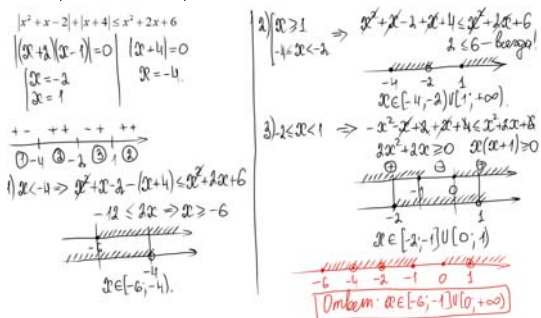 |x² + x − 2| + |x + 4| ≤ x² + 2x + 6
|(x+2)(x-1)|=0
x=-2
x=1
|x+4|=0
x=-4.
+ - + + - + + +
① -4 ② -2 ③ 1 ②
1) x<-4 ⇒ x²+x-2-(x+4)≤x²+2x+6
-12 ≤ 2x ⇒ x≥-6
-6 -4
x∈[-6;-4).
2) x≥1
-4≤x<-2
⇒ x²+x-2+x+4≤x²+2x+6
2≤6 - всегда!
-4 -2 1
x∈[-4;-2)∪[1;+∞).
3) -2≤x<1 ⇒ -x²-x+2+x+4≤x²+2x+6
2x²+2x≥0 x(x+1)≥0
⊕ ⊖ ⊕
-1 0
-2 1
x∈[-2;-1]∪[0;1)
-6 -4 -2 -1 0 1
Ответ: x∈[-6;-1]∪[0;+∞)